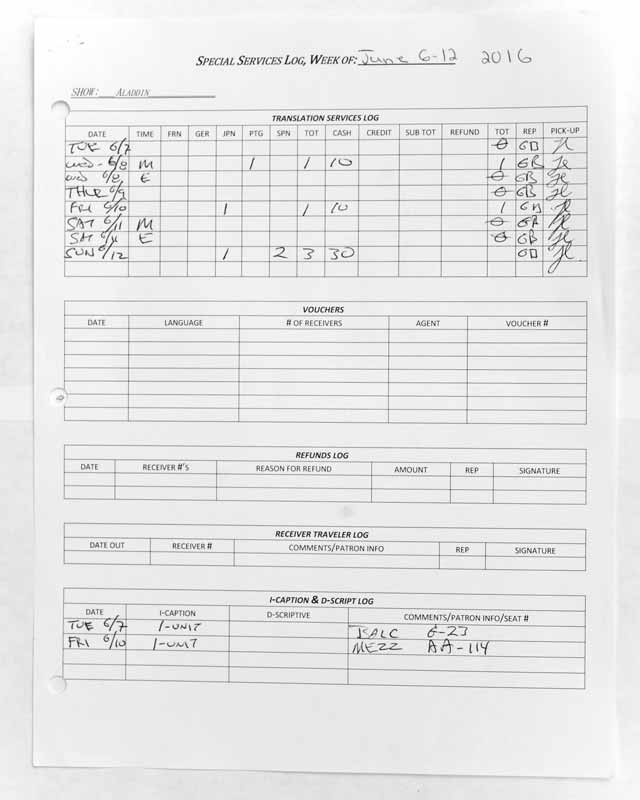 SPECIAL SERVICES LOG, WEEK OF: June 6-12 2016
SHOW: ALADDIN
TRANSLATION SERVICES LOG
DATE TIME FRN GER JPN PTG SPN TOT CASH CREDIT SUB TOT REFUND TOT REP PICK-UP
TUE 6/7 0 GB
WED- 6/8 M 1 1 10 1 GB
WED 6/8 E 0 GB
THUR 6/9 0 GB
FRI 6/10 1 1 10 1 GB
SAT 6/11 M 0 GB
SAT 6/11 E 0 GB
SUN 6/12 1 2 3 30 GB
VOUCHERS
DATE LANGUAGE # OF RECEIVERS AGENT VOUCHER #
REFUNDS LOG
DATE RECEIVER #'S REASON FOR REFUND AMOUNT REP SIGNATURE
RECEIVER TRAVELER LOG
DATE OUT RECEIVER # COMMENTS/PATRON INFO REP SIGNATURE
I-CAPTION & D-SCRIPT LOG
DATE I-CAPTION D-SCRIPTIVE COMMENTS/PATRON INFO/SEAT #
TUE 6/7 1-UNIT BALC G-23
FRI 6/10 1-UNIT MEZZ AA-114